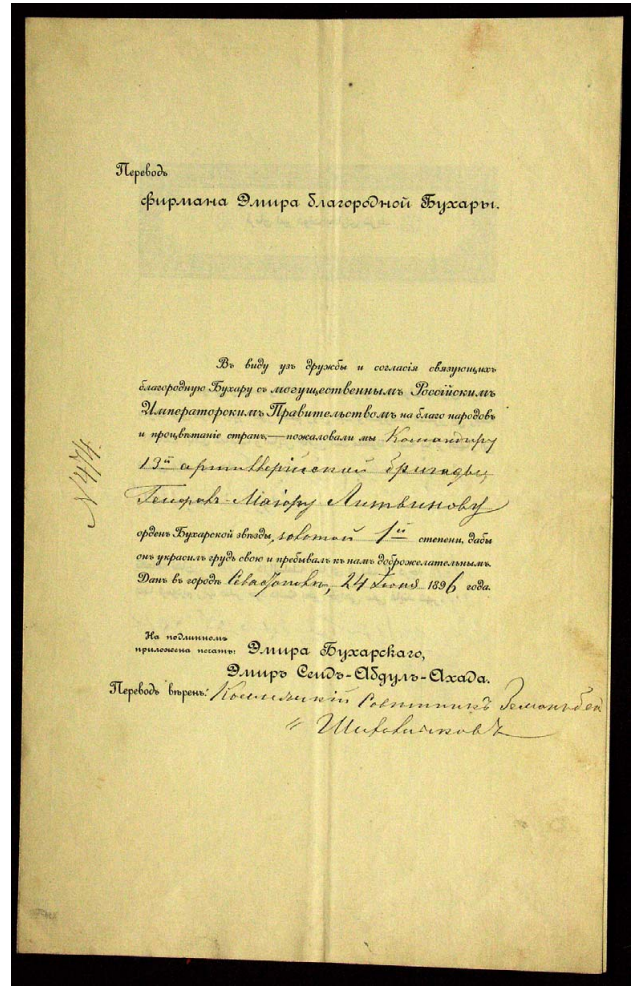 Переводъ
фирмана Эмира благородной Бухары.
Въ виду узъ дружбы и согласія связующихъ
благородную Бухару съ могущественнымъ Россійскимъ
Императоркимъ Правительствомъ на благо народовъ
и процвѣтаніе странъ,—пожаловали мы Командиру
13й артиллерійской бригады
Генералъ-Маіору Литвинову
орденъ Бухарской звѣзды, золотой 1й степени, дабы
онъ украсилъ грудь свою и пребывалъ къ намъ доброжелательнымъ.
Данъ въ городѣ Севастополѣ, 24 Іюня 1896 года.
N 474.
На подлинномъ
приложена печать: Эмира Бухарскаго,
Эмиръ Сеидъ-Абдулъ-Ахада.
Переводъ вѣренъ: Совѣтникъ